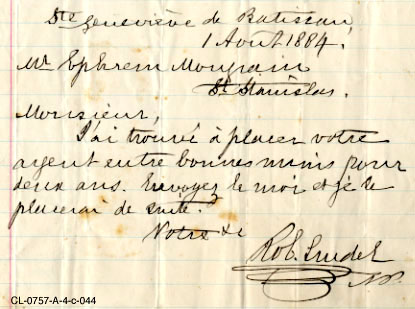 Ste Geneviève de Batiscan,
1 Août 1884.
Mr. Ephrem Mongrain
St. Stanislas.
Monsieur,
J'ai trouvé à placer votre
argent entre bonnes mains pour
deux ans. Envoyez le moi et je le
placerai de suite.
Votre &c
Rob. Trudel
N.P.
CL-0757-A-4-c-044